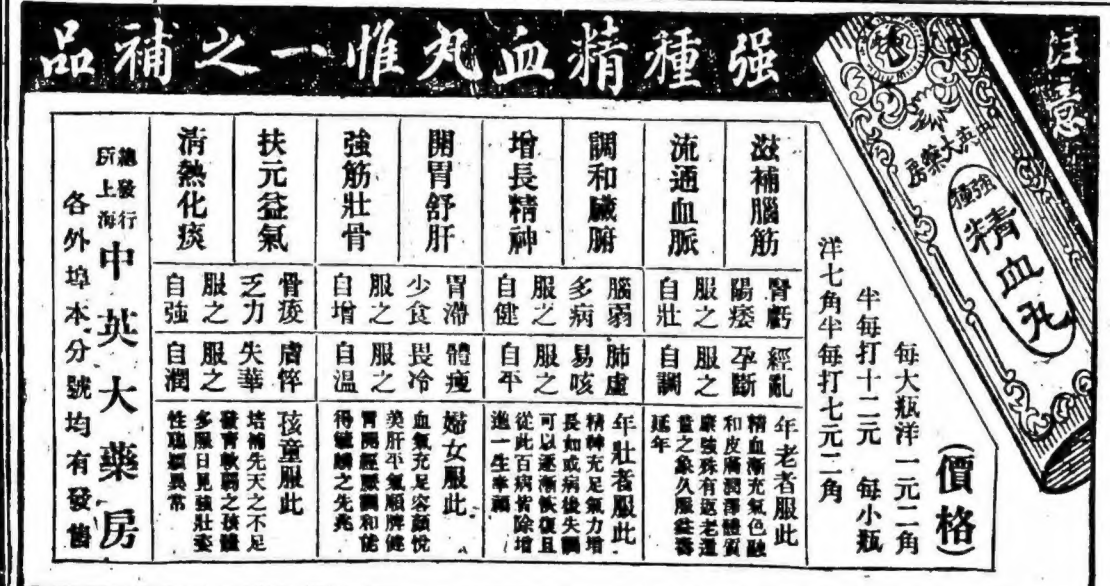 注意
强種精血丸惟一之補品
中英大藥房
強種
精血丸
(價格)
每大瓶洋一元二角
半每打十二元 每小瓶
洋七角半每打七元二角
滋補腦筋
流通血脈
調和臟腑
增長精神
開胃舒肝
強筋壯骨
扶元益氣
清熱化痰
腎虧
陽痿
服之
自壯
腦弱
多病
服之
自健
胃滯
少食
服之
自增
骨痠
乏力
服之
自強
經亂
孕斷
服之
自調
肺虛
易咳
服之
自平
體瘦
畏冷
服之
自溫
膚悴
失華
服之
自潤
年老者服此
精血漸充氣色融
和皮膚潤澤體質
康強殊有返老還
童之象久服益壽
延年
年壯者服此
精神充足氣力增
長如或病後失調
可以逐漸恢復且
從此百病皆除增
進一生幸福
婦女服此
血氣充足容顏悅
美肝平氣順脾健
胃開經脈調和能
得麟之先兆
孩童服此
培補先天之不足
發育軟弱之孩體
多服日見強壯姿
性聰穎異常
總發行
所上海
中英大藥房
各外埠本分號均有發售